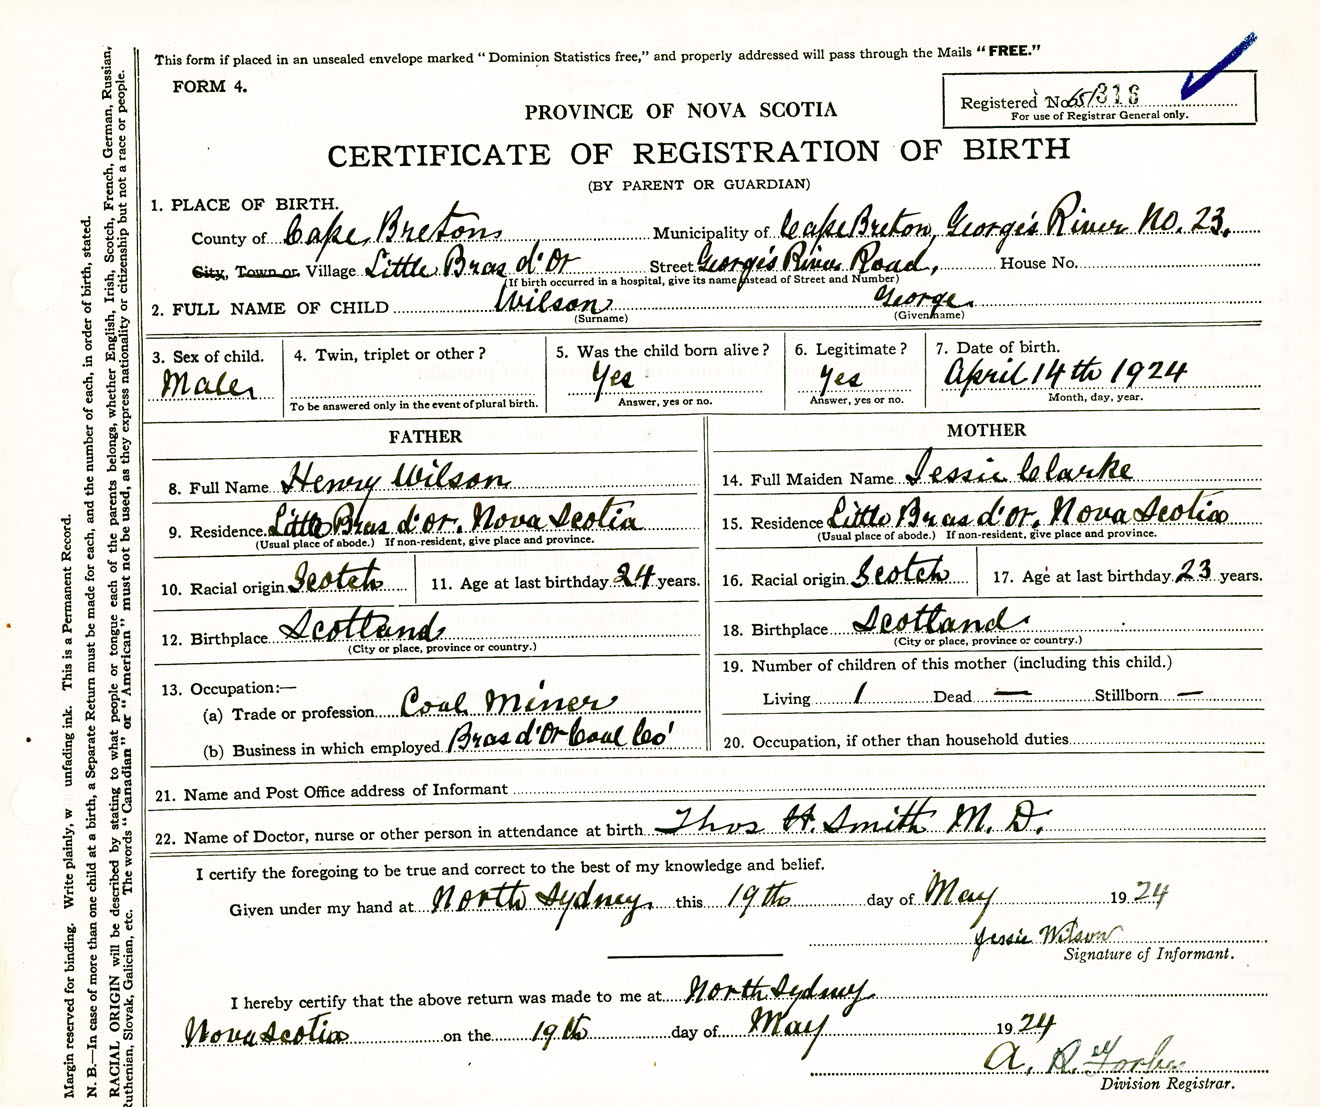 This form if placed in an unsealed envelope marked “Dominion Statistics free,” and properly addressed will pass through the Mails “FREE.”
FORM 4.
Registered No. 318
For use of Registrar General only.
PROVINCE OF NOVA SCOTIA
CERTIFICATE OF REGISTRATION OF BIRTH
(BY PARENT OR GUARDIAN)
1. PLACE OF BIRTH.
County of Cape Breton Municipality of Cape Breton, George's River No. 23.
City, Town or Village Little Bras d'Or Street George's River Road, House No.
(If birth occurred in a hospital, give its name instead of Street and Number)
2. FULL NAME OF CHILD Wilson George
(Surname) (Given name)
3. Sex of child. 4. Twin, triplet or other ? 5. Was the child born alive ? 6. Legitimate ? 7. Date of birth.
Male Yes Yes April 14th 1924
To be answered only in the event of plural birth. Answer, yes or no. Answer, yes or no. Month, day, year.
FATHER
8. Full Name Henry Wilson
9. Residence Little Bras d'or. Nova Scotia
(Usual place of abode.) If non-resident, give place and province.
10. Racial origin Scotch 11. Age at last birthday 24 years.
12. Birthplace Scotland
(City or place, province or country.)
13. Occupation:—
(a) Trade or profession Coal Miner
(b) Business in which employed Bras d'Or Coal Co'
MOTHER
14. Full Maiden Name Jessie Clarke
15. Residence Little Bras d'or. Nova Scotia
(Usual place of abode.) If non-resident, give place and province.
16. Racial origin Scotch 17. Age at last birthday 23 years.
18. Birthplace Scotland
(City or place, province or country.)
19. Number of children of this mother (including this child.)
Living 1 Dead — Stillborn —
20. Occupation, if other than household duties
21. Name and Post Office address of Informant
22. Name of Doctor, nurse or other person in attendance at birth Thos H. Smith M. D.
I certify the foregoing to be true and correct to the best of my knowledge and belief.
Given under my hand at North Sydney. this 19th day of May 1924
Jessie Wilson
Signature of Informant.
I hereby certify that the above return was made to me at North Sydney
Nova Scotia on the 19th day of May 1924
A. R. Forbes
Division Registrar.
Margin reserved for binding. Write plainly, w unfading ink. This is a Permanent Record.
N. B.—In case of more than one child at a birth, a Separate Return must be made for each, and the number of each, in order of birth, stated.
RACIAL ORIGIN will be described by stating to what people or tongue each of the parents belongs, whether English, Irish, Scotch, French, German, Russian,
Ruthenian, Slovak, Galician, etc. The words “Canadian” or “American” must not be used, as they express nationality or citizenship but not a race or people.